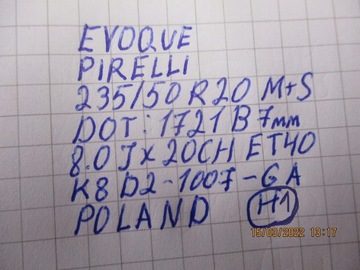 EVOQUE
PIRELLI
235/50 R20 M+S
DOT: 1721 B 7mm
8.0Jx20CH ET40
K8D2-1007-GA
POLAND H1
15/09/2022 13:17